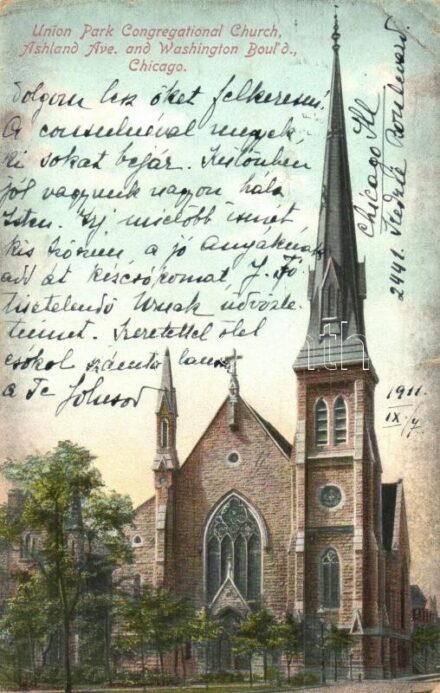 Union Park Congregational Church,
Ashland Ave. and Washington Boul'd.,
Chicago.
dolgom lesz őket felkeresni.
A consulnéval megyek
ki sokat bejár. Különben
jól vagyunk nagyon hála
Isten. Írj mielőbb ismét
kis a jó anyáknak
add át kézcsókomat,
tisztelendő Úrnak üdvözle-
temet. Szeretettel ölel
csókol számta-lanszor
a Te
Chicago Ill
2441. Kedzie Boulevard
1911.
IX/7
th